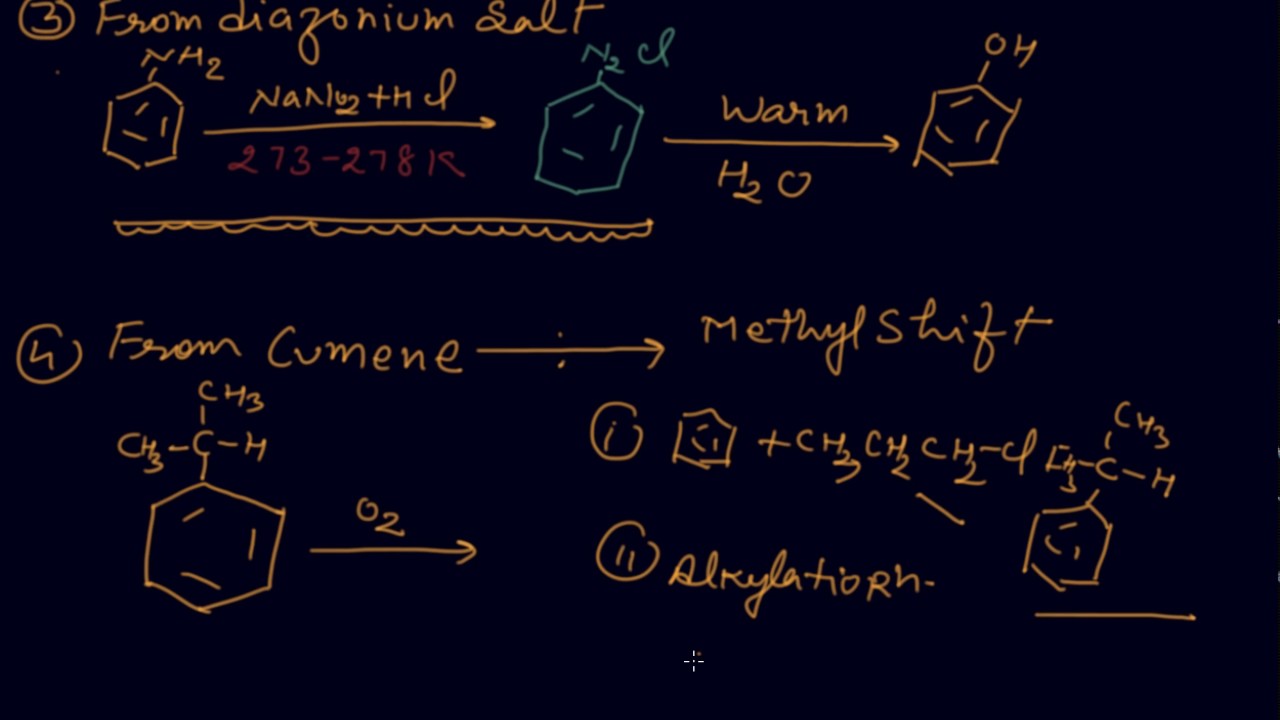 ③ From diazonium Salt
NH2 NaNo2+HCl N2Cl Warm OH
273-278K H2O
④ From Cumene : Methyl Shift
CH3
CH3-C-H
O2
ⓘ +CH3CH2CH2-Cl CH3-C-H
CH3
ⓘⓘ Alkylation.